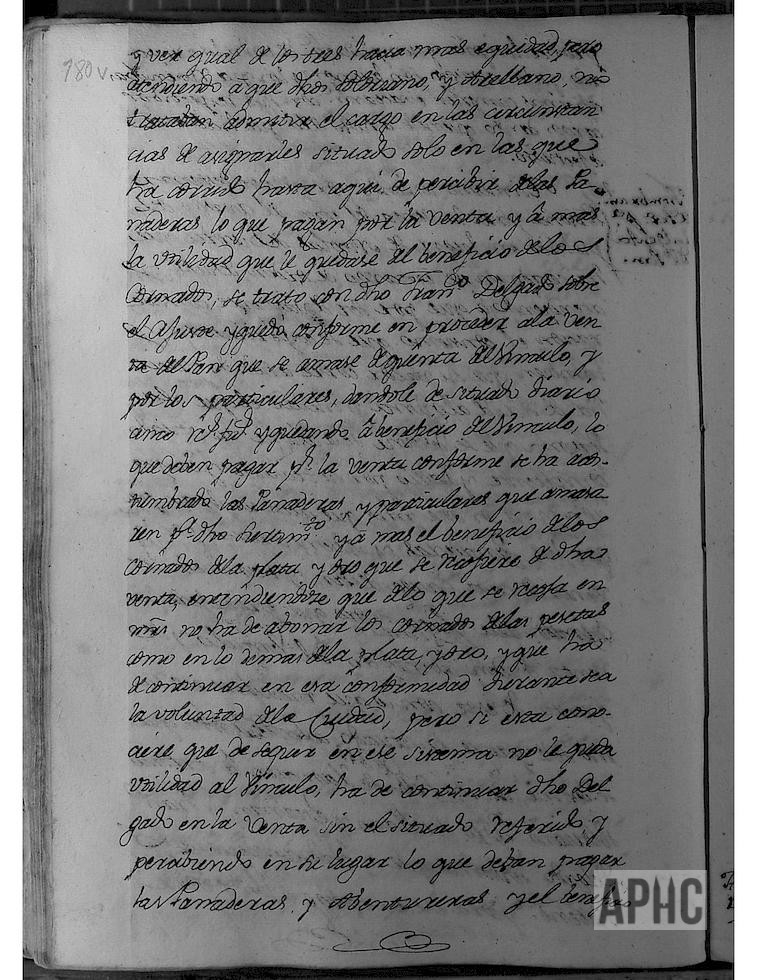 180 v.
y ver qual de los tres hacia mas equidad, pero
atendiendo â que dhos Solorzano, y Arellano, no
trataban admitir el cargo en las circunstan
cias de asignarles situado solo en las que
ha corrido hasta aqui de percibir delas Pa
naderas lo que pagan por la venta y â mas
la utilidad que le quedase del beneficio delos
Cornados, se trato con dho Fran.co Delgado sobre
el Ajuste y quedò conforme en proceder ala ven
ta del Pan que se amase de quenta del Vinculo, y
por los particulares, dandole de situado diario
y quedando â beneficio del Vinculo, lo
que deben pagar p.r la venta conforme se ha acos-
tumbrado las Panaderas y particulares que amasa
ren p.a dho y â mas el beneficio delos
Cornados dela plata y oro que se recogiere de dha
venta, entendiendose que delo que se recoja en
no ha de abonar los cornados delas pesetas
como en lo demas dela plata, y oro, y que ha
de continuar en esa conformidad durante sea
la voluntad dela Ciudad, pero si esta cono-
ciere que de seguir en ese sistema no le queda
utilidad al Vinculo, ha de continuar dho Del
gado en la venta sin el situado referido y
percibiendo en su lugar lo que deban pagar
las Panaderas y Abentureras y el benefi
APHC